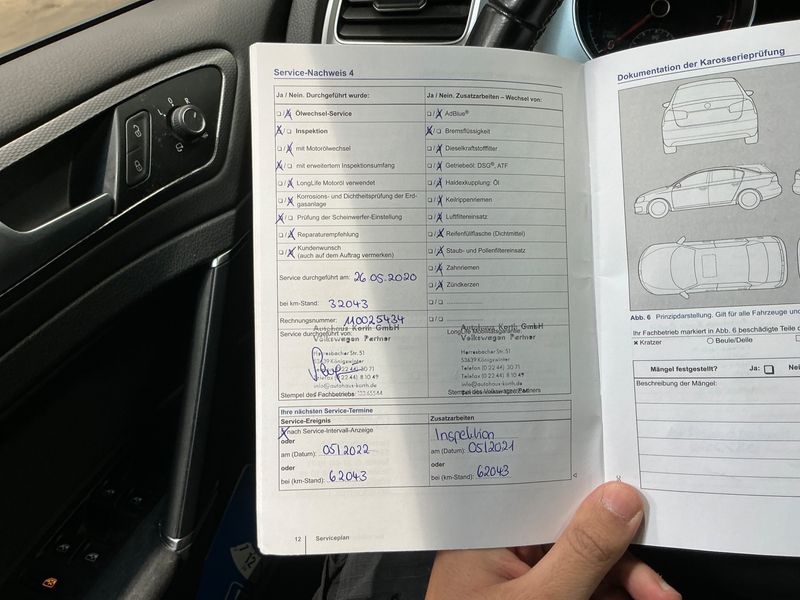 Service-Nachweis 4
Ja / Nein. Durchgeführt wurde:
Ölwechsel-Service
Inspektion
mit Motorölwechsel
mit erweitertem Inspektionsumfang
LongLife Motoröl verwendet
Korrosions- und Dichtheitsprüfung der Erd-
gasanlage
Prüfung der Scheinwerfer-Einstellung
Reparaturempfehlung
Kundenwunsch
(auch auf dem Auftrag vermerken)
Service durchgeführt am: 26.05.2020
bei km-Stand: 32043
Rechnungsnummer: 110025434
Service durchgeführt von:
Autohaus Korth GmbH
Volkswagen Partner
Herresbacher Str. 51
53639 Königswinter
Telefon (0 22 44) 30 71
Telefax (0 22 44) 8 10 49
info@autohaus-korth.de
Stempel des Fachbetriebs
Ja / Nein. Zusatzarbeiten – Wechsel von:
AdBlue®
Bremsflüssigkeit
Dieselkraftstofffilter
Getriebeöl: DSG®, ATF
Haldexkupplung: Öl
Keilrippenriemen
Luftfiltereinsatz
Reifenfüllflasche (Dichtmittel)
Staub- und Pollenfiltereinsatz
Zahnriemen
Zündkerzen
LongLife Mobilitätsgarantie:
Autohaus Korth GmbH
Volkswagen Partner
Herresbacher Str. 51
53639 Königswinter
Telefon (0 22 44) 30 71
Telefax (0 22 44) 8 10 49
info@autohaus-korth.de
Stempel des Volkswagen Partners
Ihre nächsten Service-Termine
Service-Ereignis
nach Service-Intervall-Anzeige
oder
am (Datum): 05/2022
oder
bei (km-Stand): 62043
Zusatzarbeiten
Inspektion
am (Datum): 05/2021
oder
bei (km-Stand): 62043
12 Serviceplan
Dokumentation der Karosserieprüfung
Abb. 6 Prinzipdarstellung. Gilt für alle Fahrzeuge
Ihr Fachbetrieb markiert in Abb. 6 beschädigte Teile
Kratzer
Beule/Delle
Mängel festgestellt? Ja:
Beschreibung der Mängel: